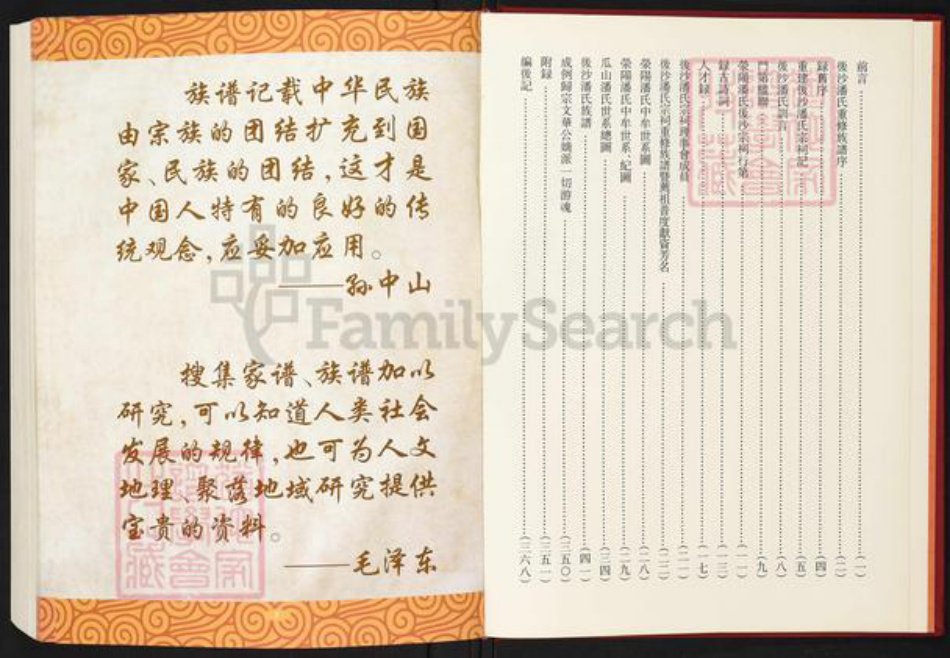 族谱记载中华民族
由宗族的团结扩充到国
家、民族的团结,这才是
中国人特有的良好的传
统观念,应妥加应用。
——孙中山
搜集家谱、族谱加以
研究,可以知道人类社会
发展的规律,也可为人文
地理、聚落地域研究提供
宝贵的资料。
——毛泽东
FamilySearch
前言(一)
後沙潘氏重修族譜序(二)
録舊序(四)
重建後沙潘氏宗祠記(五)
後沙潘氏訓言(八)
門第楹聯(九)
滎陽潘氏後沙宗祠行第(一一)
録古詩詞(一三)
人才録(一七)
後沙潘氏宗祠理事會成員(二一)
後沙潘氏宗祠重修族譜暨薦祖普度獻資芳名(二二)
滎陽潘氏中牟世系圖(二八)
滎陽潘氏中牟世系紀圖(二九)
瓜山潘氏世系總圖(三四)
後沙潘氏族譜(四一)
成例歸宗文華公嫡派一切游魂(三五〇)
附録(三五一)
編後記(三六八)